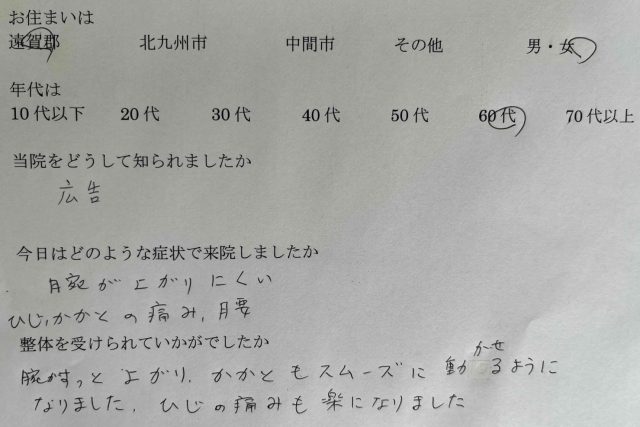 お住まいは
遠賀郡 北九州市 中間市 その他 男・女
年代は
10代以下 20代 30代 40代 50代 60代 70代以上
当院をどうして知られましたか
広告
今日はどのような症状で来院しましたか
腕が上がりにくい
ひじ,かかとの痛み,腰
整体を受けられていかがでしたか
腕がすっと上がり,かかともスムーズに動かせるように
なりました,ひじの痛みも楽になりました